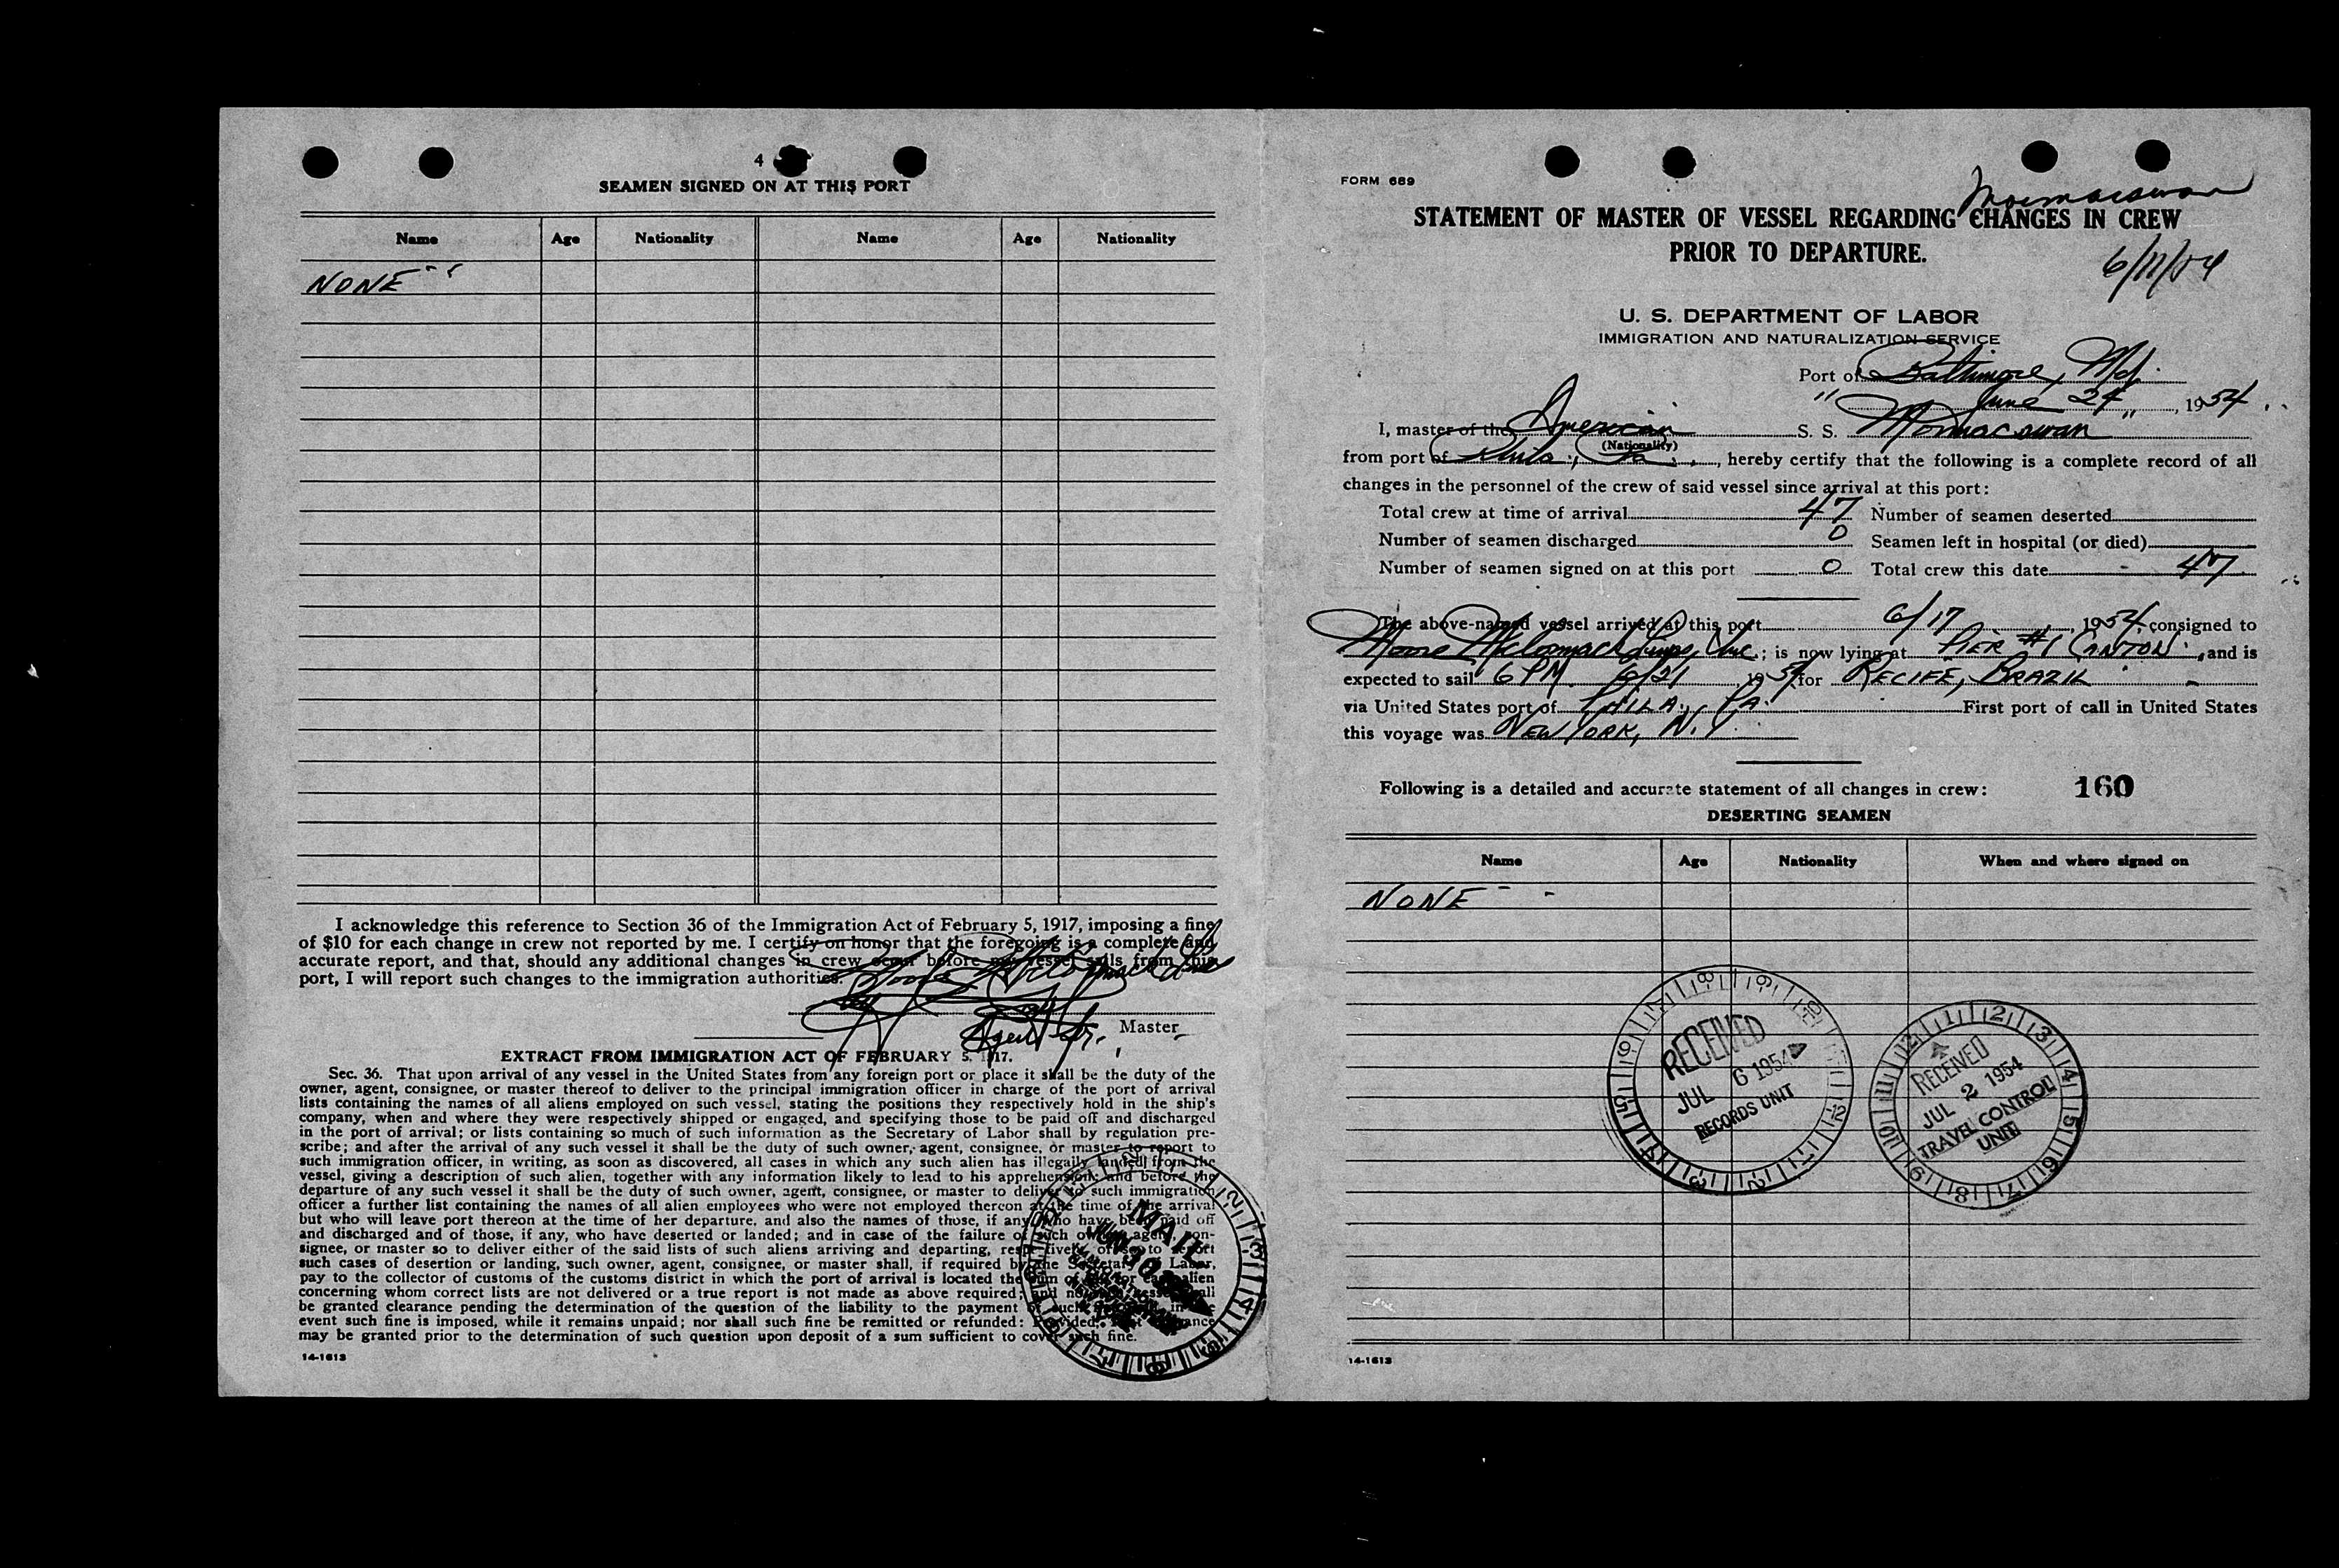 4
SEAMEN SIGNED ON AT THIS PORT
Name Age Nationality Name Age Nationality
NONE
I acknowledge this reference to Section 36 of the Immigration Act of February 5, 1917, imposing a fine
of $10 for each change in crew not reported by me. I certify on honor that the foregoing is a complete and
accurate report, and that, should any additional changes in crew occur before my vessel sails from this
port, I will report such changes to the immigration authorities.
Moore McCormack Lines
by
Agent for. Master
EXTRACT FROM IMMIGRATION ACT OF FEBRUARY 5, 1917.
Sec. 36. That upon arrival of any vessel in the United States from any foreign port or place it shall be the duty of the
owner, agent, consignee, or master thereof to deliver to the principal immigration officer in charge of the port of arrival
lists containing the names of all aliens employed on such vessel, stating the positions they respectively hold in the ship's
company, when and where they were respectively shipped or engaged, and specifying those to be paid off and discharged
in the port of arrival; or lists containing so much of such information as the Secretary of Labor shall by regulation pre-
scribe; and after the arrival of any such vessel it shall be the duty of such owner, agent, consignee, or master to report to
such immigration officer, in writing, as soon as discovered, all cases in which any such alien has illegally landed from the
vessel, giving a description of such alien, together with any information likely to lead to his apprehension; and before the
departure of any such vessel it shall be the duty of such owner, agent, consignee, or master to deliver to such immigration
officer a further list containing the names of all alien employees who were not employed thereon at the time of the arrival
but who will leave port thereon at the time of her departure, and also the names of those, if any, who have been paid off
and discharged and of those, if any, who have deserted or landed; and in case of the failure of such owner, agent, con-
signee, or master so to deliver either of the said lists of such aliens arriving and departing, respectively, or so to report
such cases of desertion or landing, such owner, agent, consignee, or master shall, if required by the Secretary of Labor,
pay to the collector of customs of the customs district in which the port of arrival is located the sum of $10 for each alien
concerning whom correct lists are not delivered or a true report is not made as above required; and no such vessel shall
be granted clearance pending the determination of the question of the liability to the payment of such fine, and, in the
event such fine is imposed, while it remains unpaid; nor shall such fine be remitted or refunded: Provided, That clearance
may be granted prior to the determination of such question upon deposit of a sum sufficient to cover such fine.
MAIL
14-1613
FORM 689
Mormacswan
STATEMENT OF MASTER OF VESSEL REGARDING CHANGES IN CREW
PRIOR TO DEPARTURE.
6/11/54
U. S. DEPARTMENT OF LABOR
IMMIGRATION AND NATURALIZATION SERVICE
Port of Baltimore, Md.
June 24, 1954
I, master of the American S. S. Mormacswan
(Nationality)
from port of Phila., Pa., hereby certify that the following is a complete record of all
changes in the personnel of the crew of said vessel since arrival at this port:
Total crew at time of arrival 47 Number of seamen deserted
Number of seamen discharged 0 Seamen left in hospital (or died)
Number of seamen signed on at this port 0 Total crew this date 47
The above-named vessel arrived at this port 6/17, 1954 consigned to
Moore McCormack Lines, Inc.; is now lying at PIER #1 CANTON, and is
expected to sail 6 PM 6/21 1954 for RECIFE, BRAZIL
via United States port of PHILA., PA. First port of call in United States
this voyage was NEW YORK, N.Y.
Following is a detailed and accurate statement of all changes in crew: 160
DESERTING SEAMEN
Name Age Nationality When and where signed on
NONE
RECEIVED
JUL 6 1954
RECORDS UNIT
RECEIVED
JUL 2 1954
TRAVEL CONTROL
UNIT
14-1613